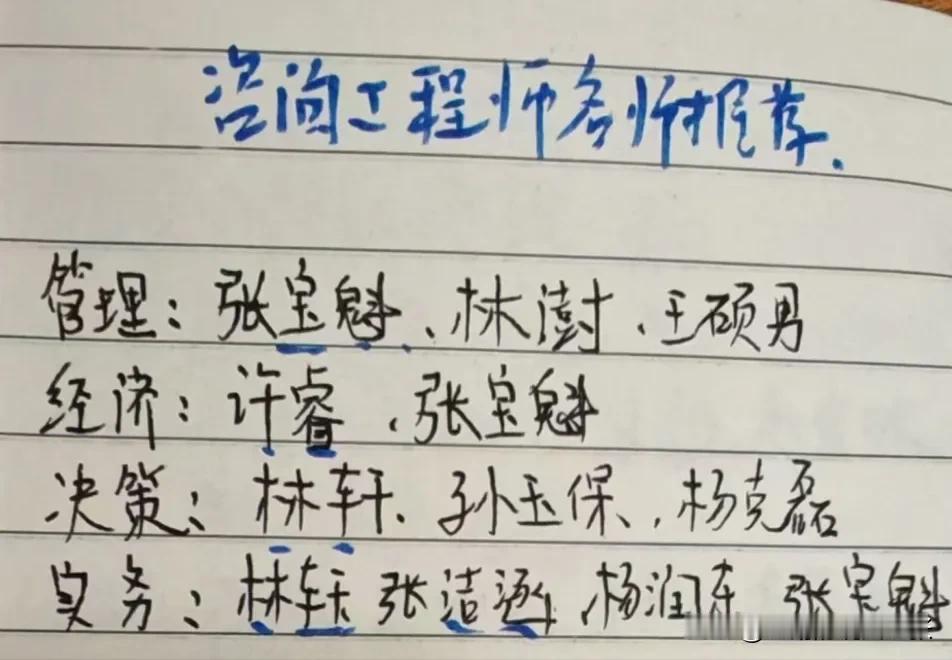 咨询工程师名师推荐.
管理：张宝魁、林澍、王硕男
经济：许睿、张宝魁
决策：林轩、孙玉保、杨克磊
实务：林轩 张洁逐 杨润东 张宝魁